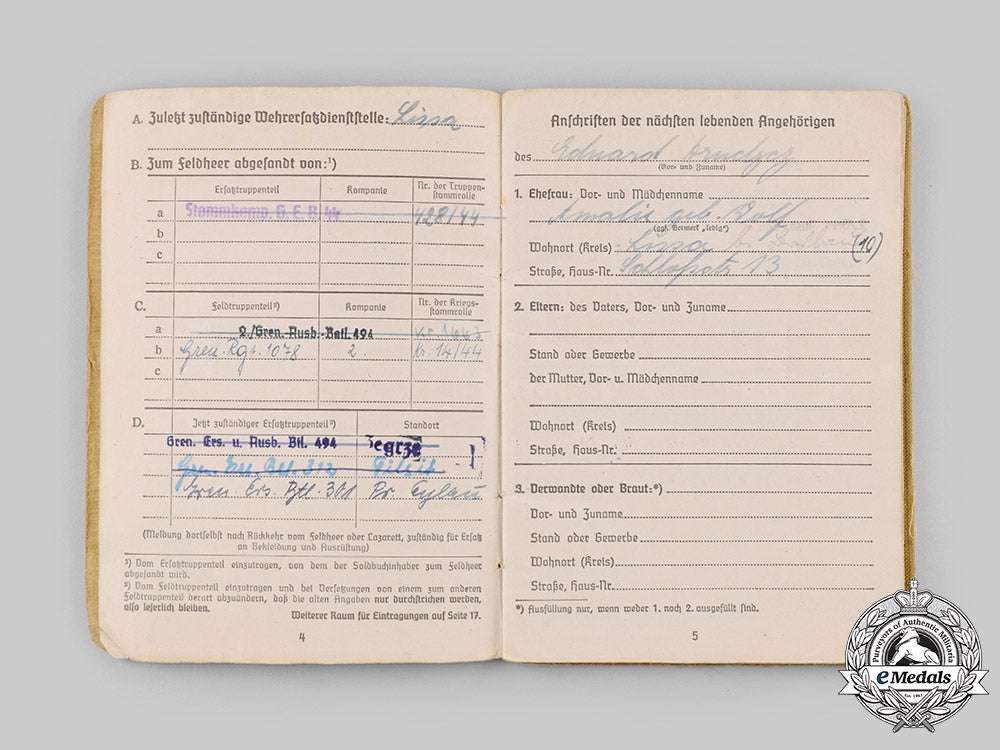 A. Zuletzt zuständige Wehrersatzdienststelle: Lissa
B. Zum Feldheer abgesandt von:¹)
Ersatztruppenteil Kompanie Nr. der Truppen-
stammrolle
a Stammkomp. G. E. B 44 428/44
b
c
C. Feldtruppenteil²) Kompanie Nr. der Kriegs-
stammrolle
a 2./Gren. Ausb.-Batl. 494 Kr. 1663
b Gren. Rgt. 1078 2. Kr. 14/44
c
D. Jetzt zuständiger Ersatztruppenteil²) Standort
Gren. Ers. u. Ausb. Btl. 494 Zegrze
Gren. Ers. Btl. 312 Tilsit
Gren. Ers. Btl. 301 Pr. Eylau
(Meldung dortselbst nach Rückkehr vom Feldheer oder Lazarett, zuständig für Ersatz
an Bekleidung und Ausrüstung)
¹) Vom Ersatztruppenteil einzutragen, von dem der Soldbuchinhaber zum Feldheer
abgesandt wird.
²) Vom Feldtruppenteil einzutragen und bei Versetzungen von einem zum anderen
Feldtruppenteil derart abzuändern, daß die alten Angaben nur durchstrichen werden,
also leserlich bleiben.
Weiterer Raum für Eintragungen auf Seite 17.
4
Anschriften der nächsten lebenden Angehörigen
des Eduard
(Vor- und Zuname)
1. Ehefrau: Vor- und Mädchenname
Amalie geb. Wolf
(ggf. Vermerk „ledig“)
Wohnort (Kreis) Lissa (10)
Straße, Haus-Nr. 13
2. Eltern: des Vaters, Vor- und Zuname
Stand oder Gewerbe
der Mutter, Vor- u. Mädchenname
Wohnort (Kreis)
Straße, Haus-Nr.
3. Verwandte oder Braut:*)
Vor- und Zuname
Stand oder Gewerbe
Wohnort (Kreis)
Straße, Haus-Nr.
*) Ausfüllung nur, wenn weder 1. noch 2. ausgefüllt sind.
5
Purveyors of Authentic Militaria
eMedals
Est. 1967